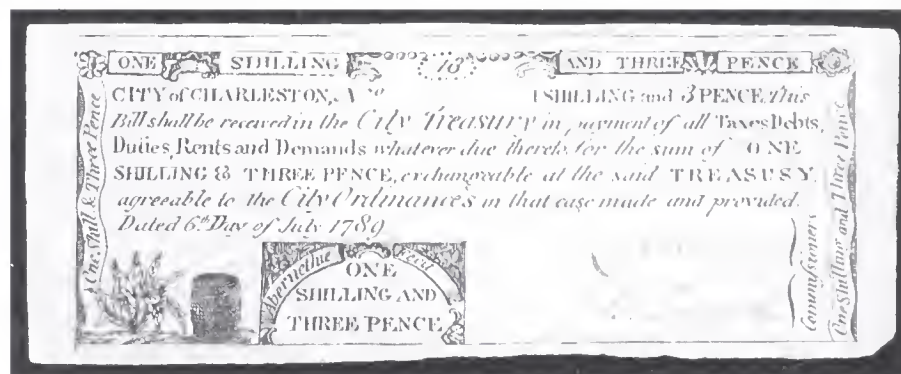 ONE SHILLING AND THREE PENCE
CITY of CHARLESTON, No 1 SHILLING and 3 PENCE. This
Bill shall be received in the City Treasury in payment of all Taxes Debts,
Duties, Rents and Demands whatever due thereto for the sum of ONE
SHILLING & THREE PENCE, exchangeable at the said TREASUSY,
agreeable to the City Ordinances in that case made and provided.
Dated 6th Day of July 1789
One Shill. & Three Pence
Abernethie fecit
ONE
SHILLING AND
THREE PENCE
Commissioners
One Shilling and Three Pence